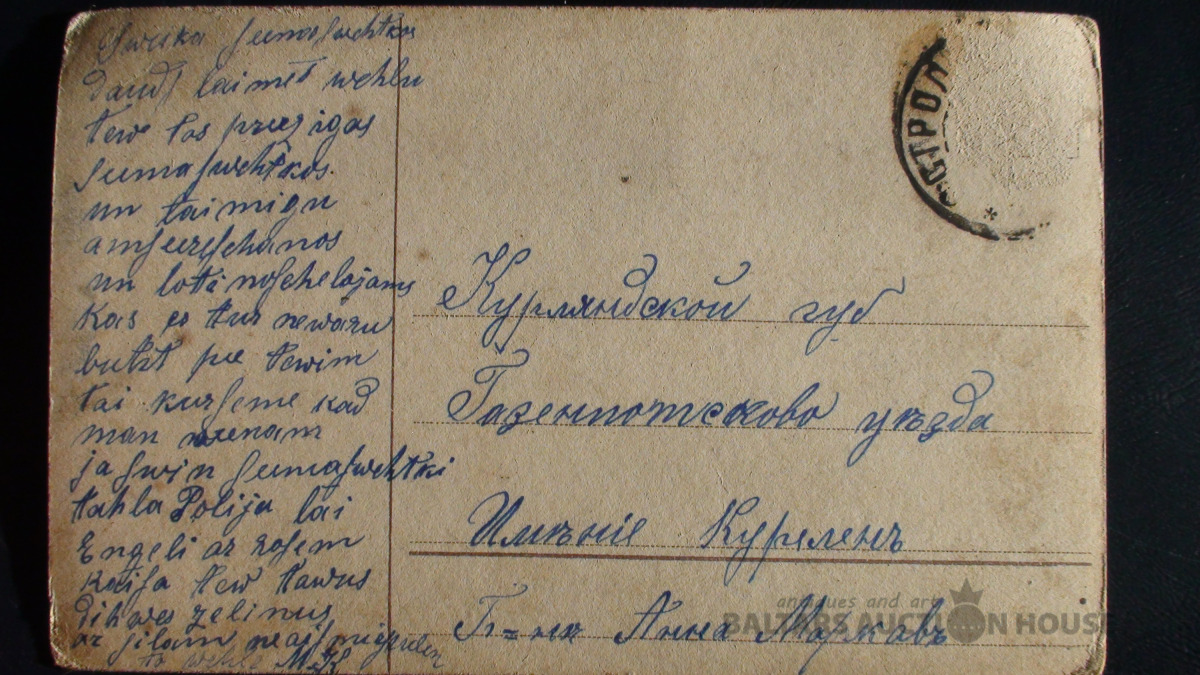 Sweika seemasswehtkos
daudz laimes wehlu
tew tos preezigos
seemasswehtkos
un laimigu
amseereschanos
un loti noschelojams
Kas es tur newaru
buht pee tewim
tai kurseme kad
man weenam
ja swin seemasswehtki
tahla Polija lai
Engeli ar rosem
kaisa tew tawus
dsihwes zelinus
ar silam neaismirstelem
to wehle M.K
СТРОЛ
*
Курляндской губ
Газенпотсково уѣзда
Имѣніе Куреленъ
Г-на Анна Маркавъ
antiques and art
BALTARS AUCTION HOUSE